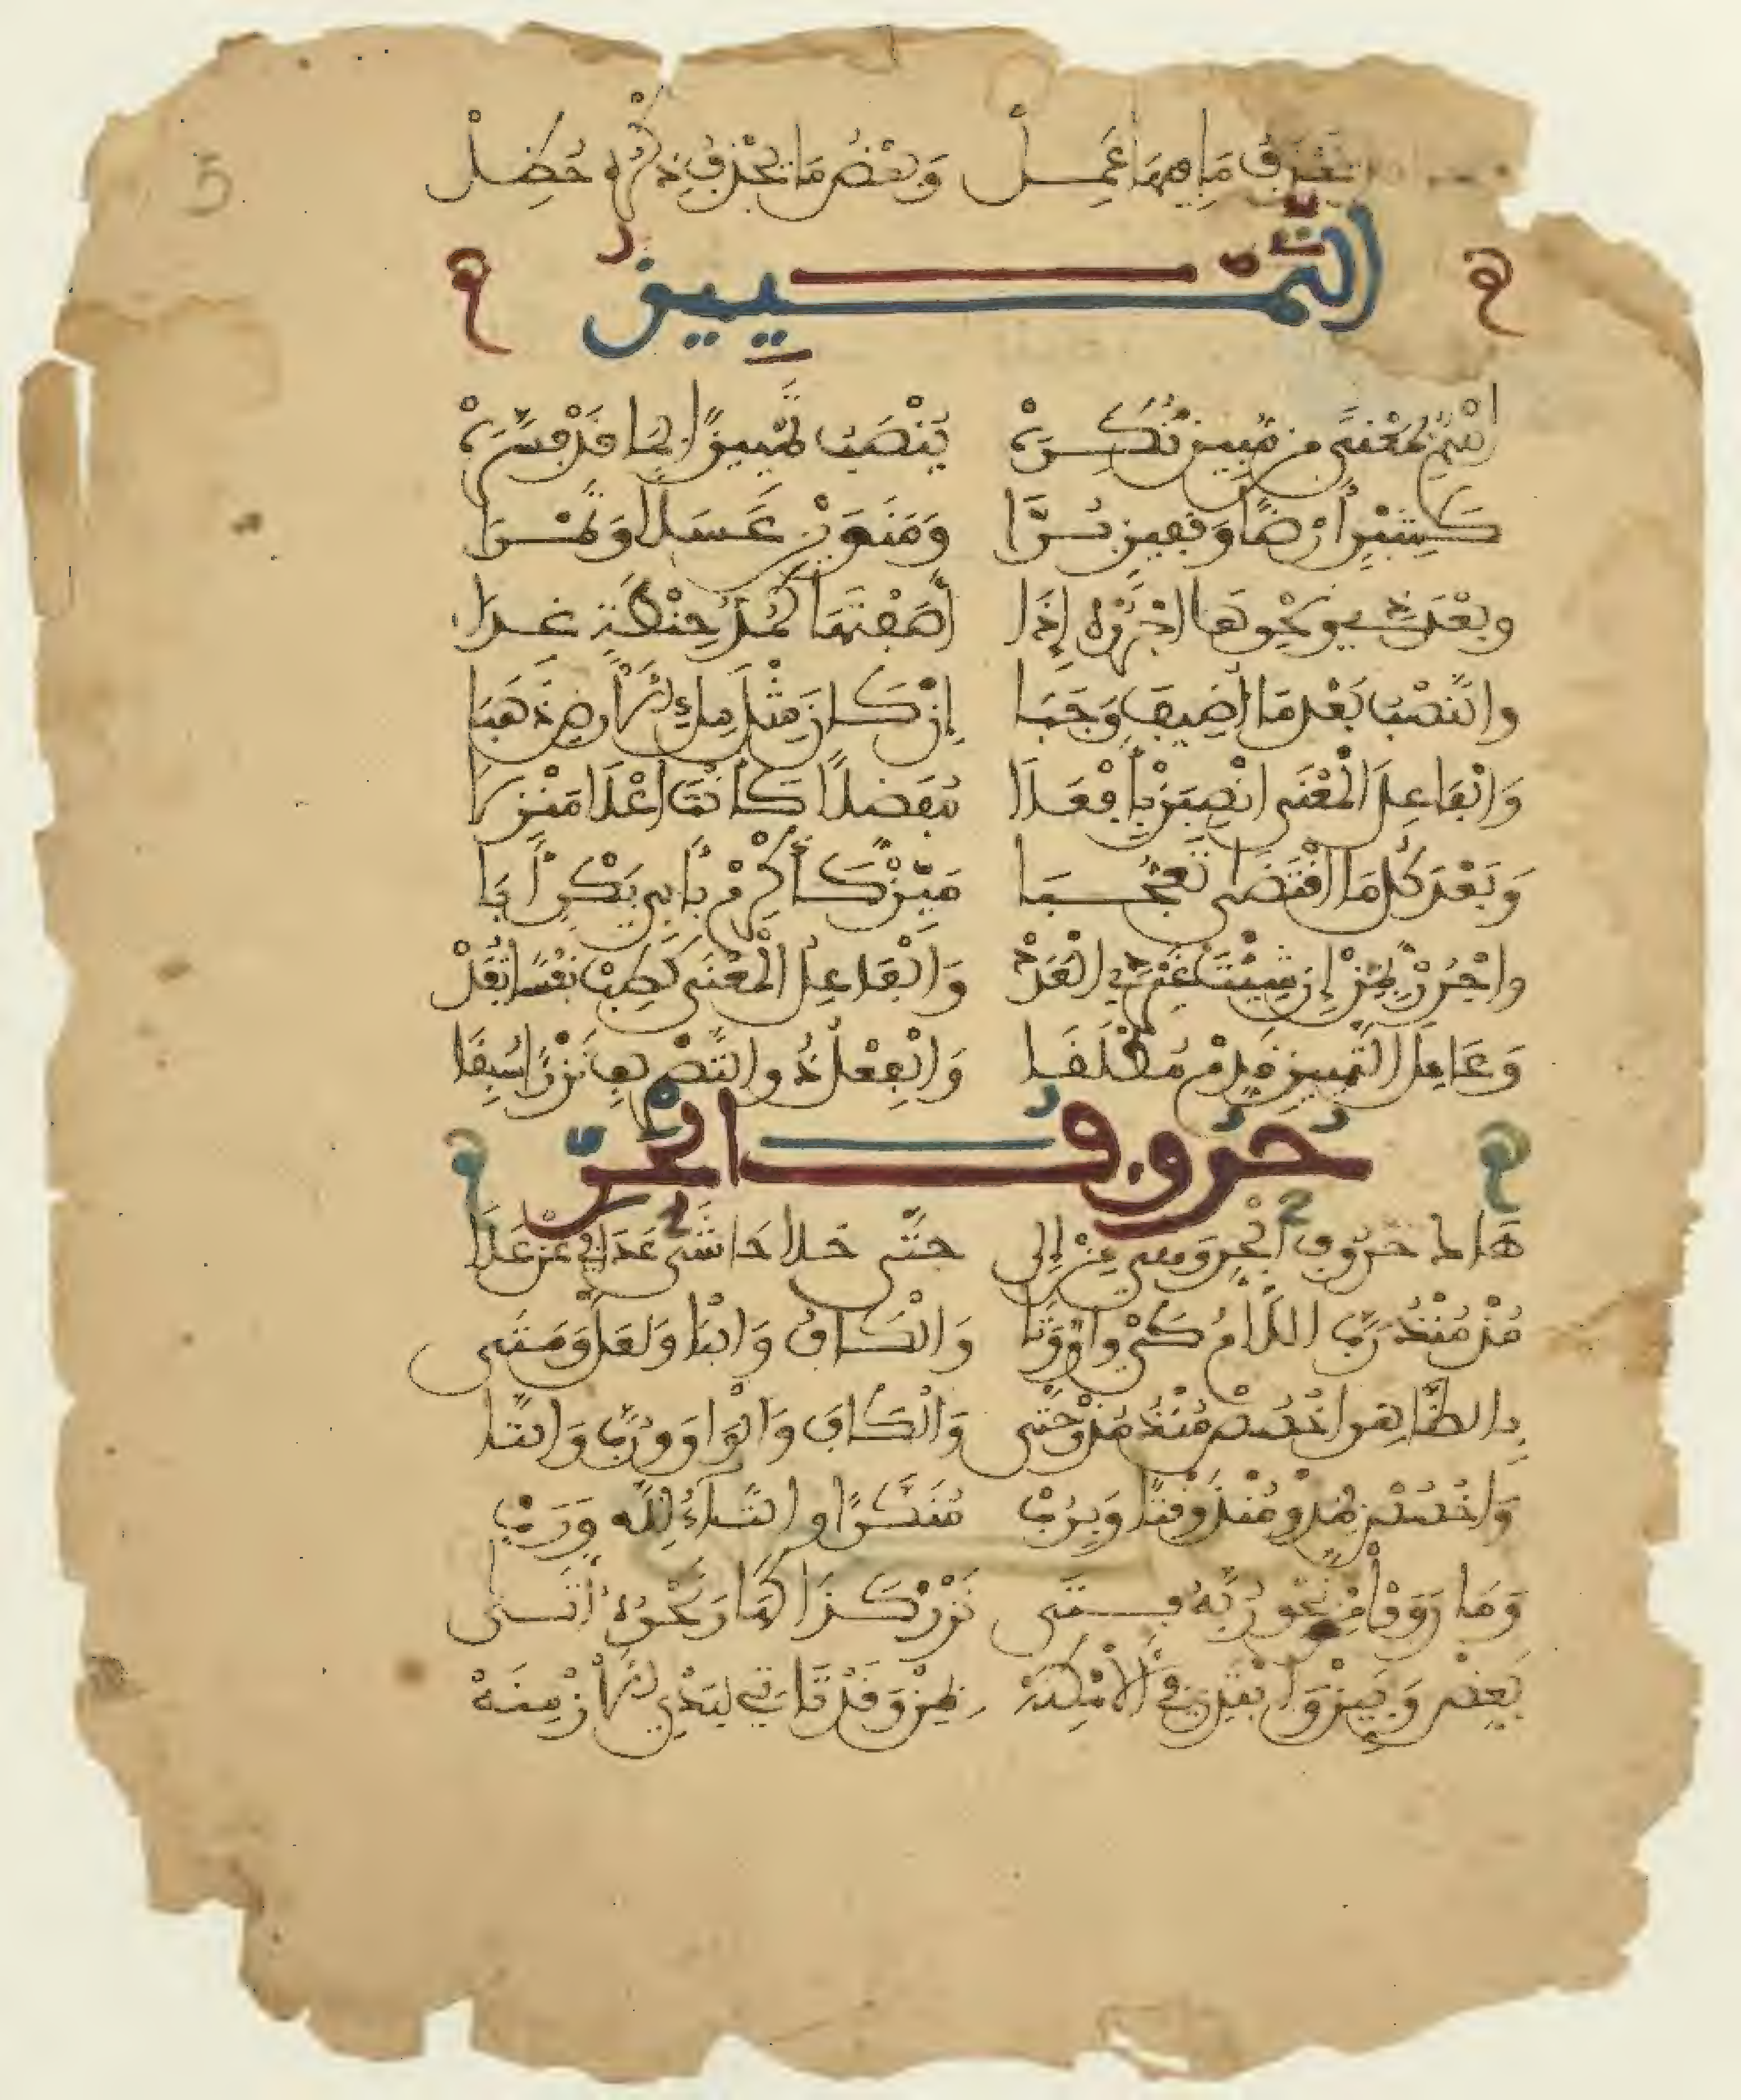 يحذف ما فيها عمل وبعض ما يحذف ذكره حضل
التمييز
اسم بمعنى من مبين نكره ينصب تمييزا بما قد فسره
كشبر ارضا وقفيز برا ومنوين عسلا وتمرا
وبعد ذي ونحوها اجرره إذا أضفتها كمد حنطة غذا
والنصب بعد ما أضيف وجبا إن كان مثل ملء الأرض ذهبا
والفاعل المعنى انصبن بأفعلا مفضلا كأنت أعلا منزلا
وبعد كل ما اقتضى تعجبا ميز كأكرم بأبي بكر أبا
واجرر بمن إن شئت غير ذي العدد والفاعل المعنى كطب نفسا تفد
وعامل التمييز قدم مطلقا والفعل ذو التصريف نزرا سبقا
حروف الجر
هاك حروف الجر وهي من إلى حتى خلا حاشى عدا في عن على
مذ منذ رب اللام كي واو وتا والكاف والبا ولعل ومتى
بالظاهر اخصص منذ مذ وحتى والكاف والواو ورب والتا
واخصص بمذ ومنذ وقتا وبرب منكرا والتاء لله ورب
وما رووا من نحو ربه فتى نزر كذا كها ونحوه أتى
بعض وبين وابتدئ في الأمكنه بمن وقد تاتي لبدء الأزمنه
5